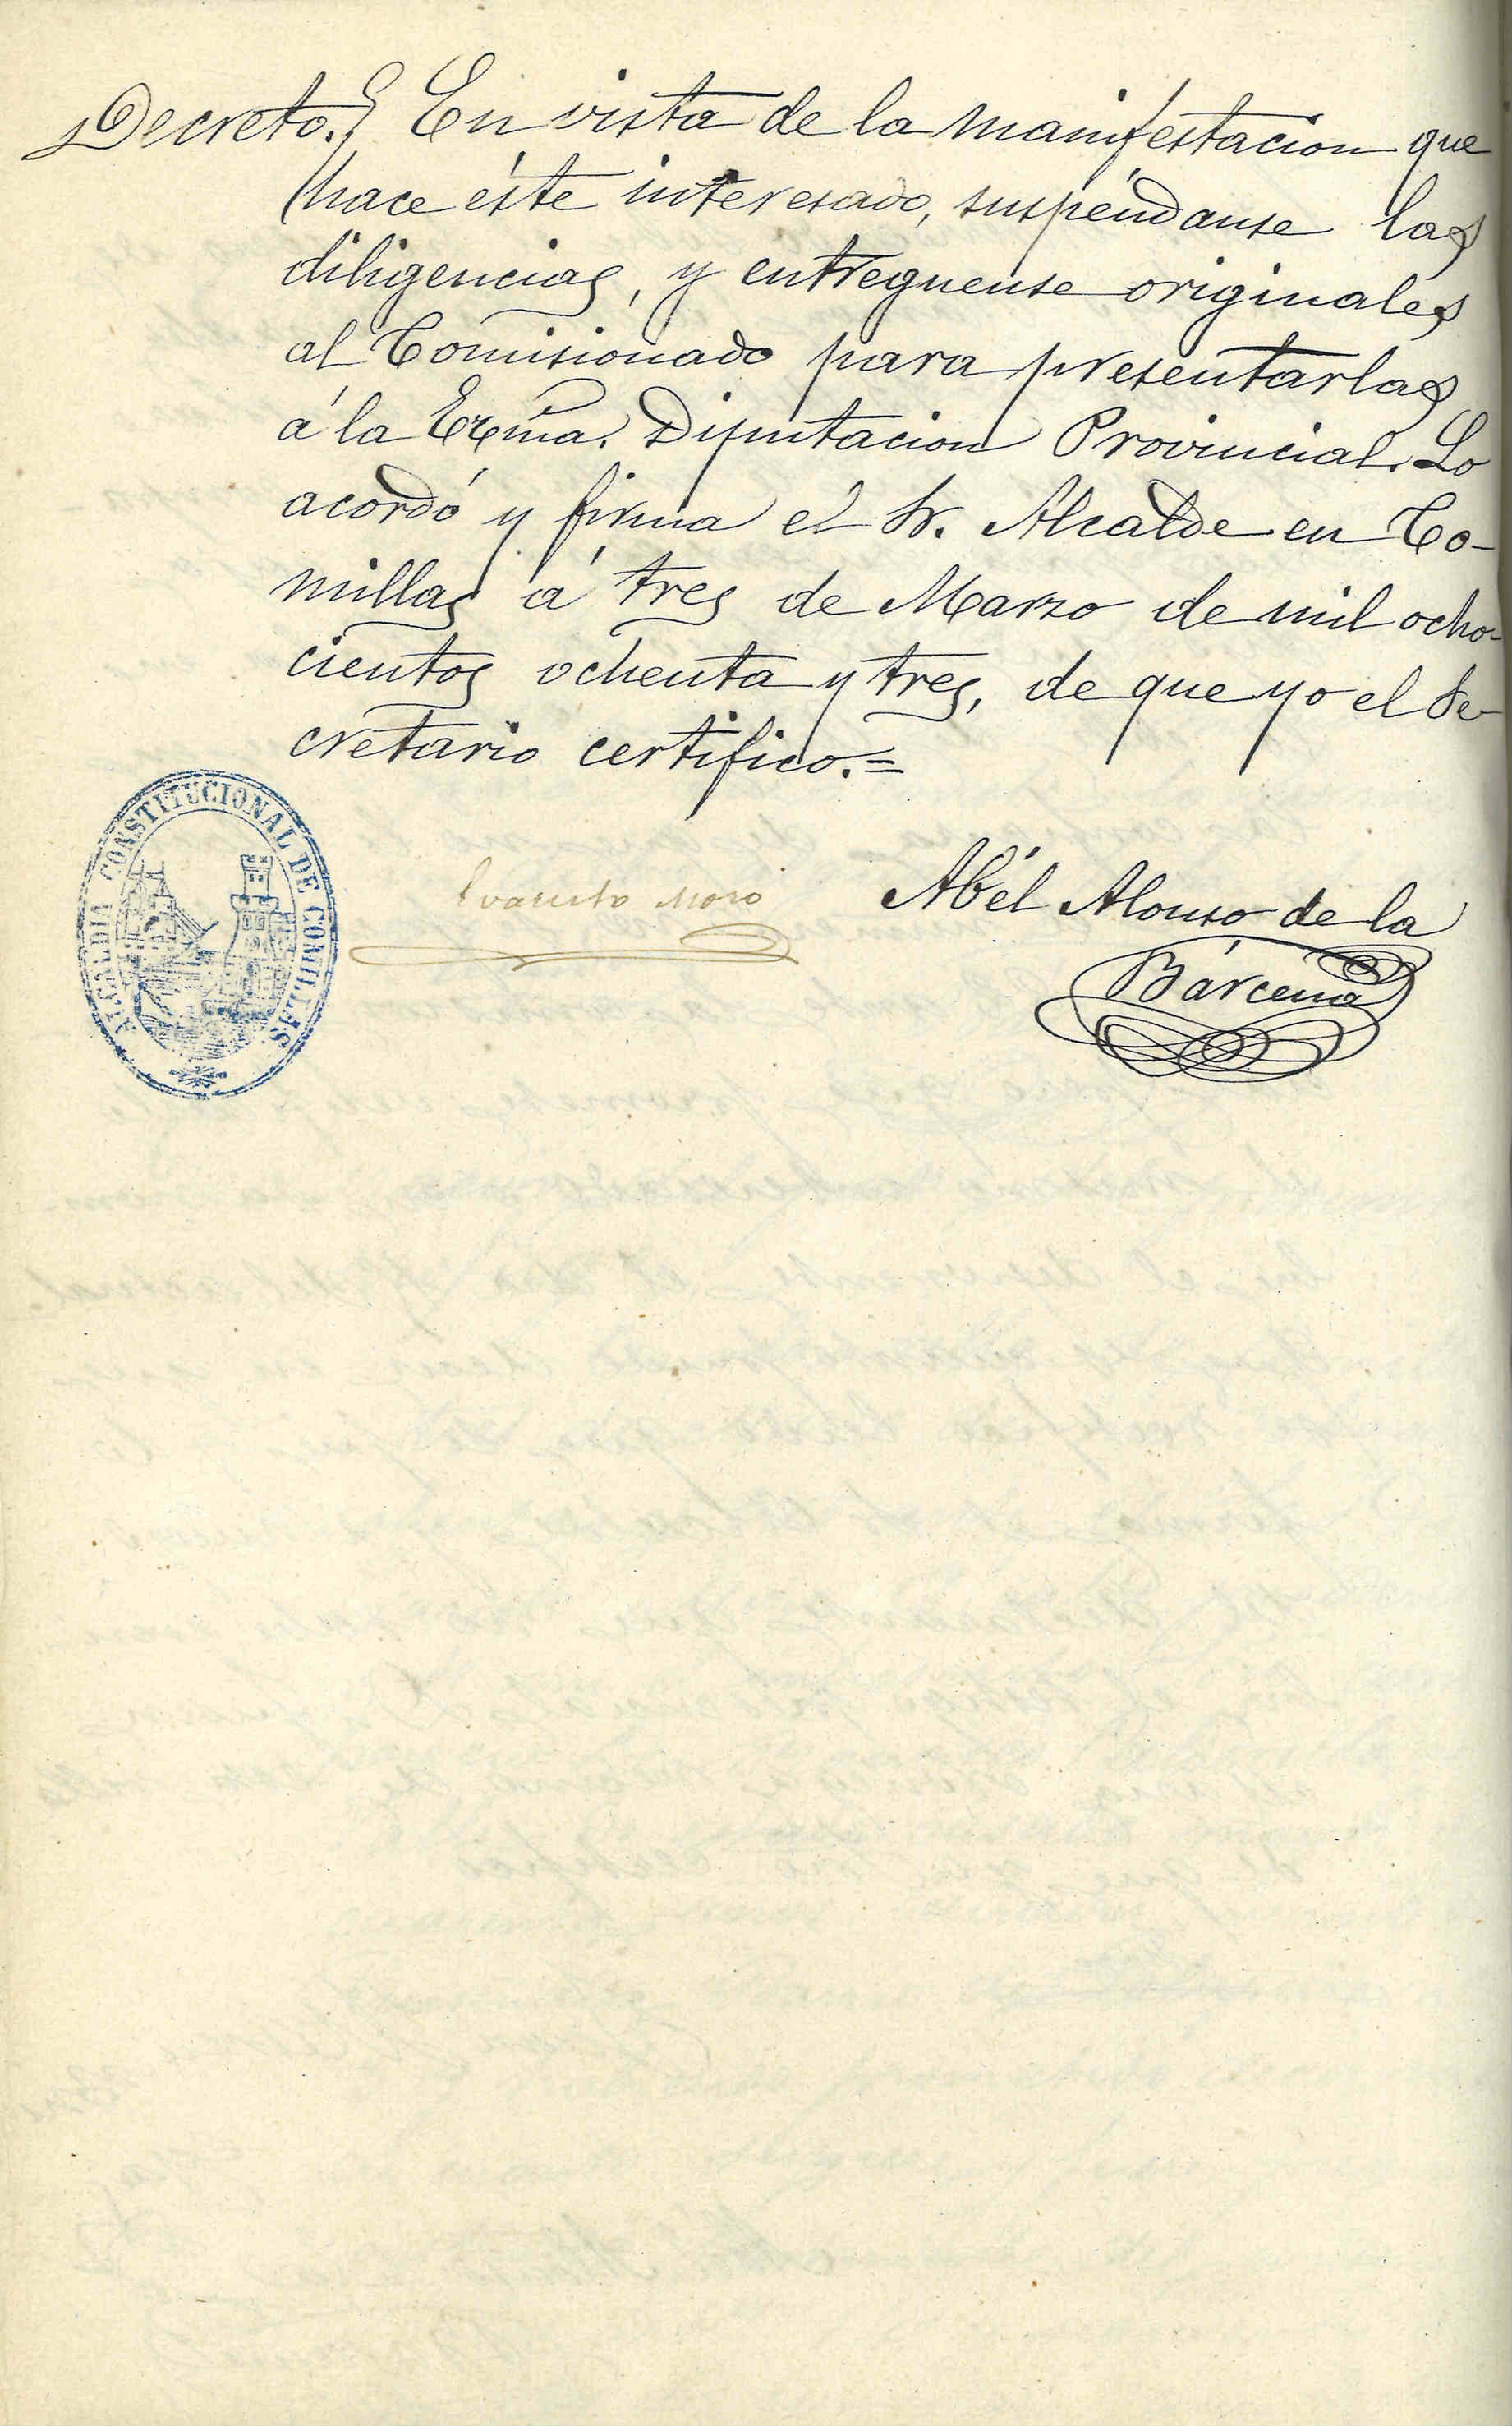 Decreto. En vista de la manifestacion que
hace éste interesado, suspéndanse las
diligencias, y entreguense originales
al Comisionado para presentarlas
á la Exma. Diputacion Provincial. Lo
acordó y firma el Sr. Alcalde en Co-
millas á tres de Marzo de mil ocho-
cientos ochenta y tres, de que yo el Se-
cretario certifico.=
ALCALDIA CONSTITUCIONAL DE COMILLAS
Evaristo Moro
Abél Alonso de la
Bárcena